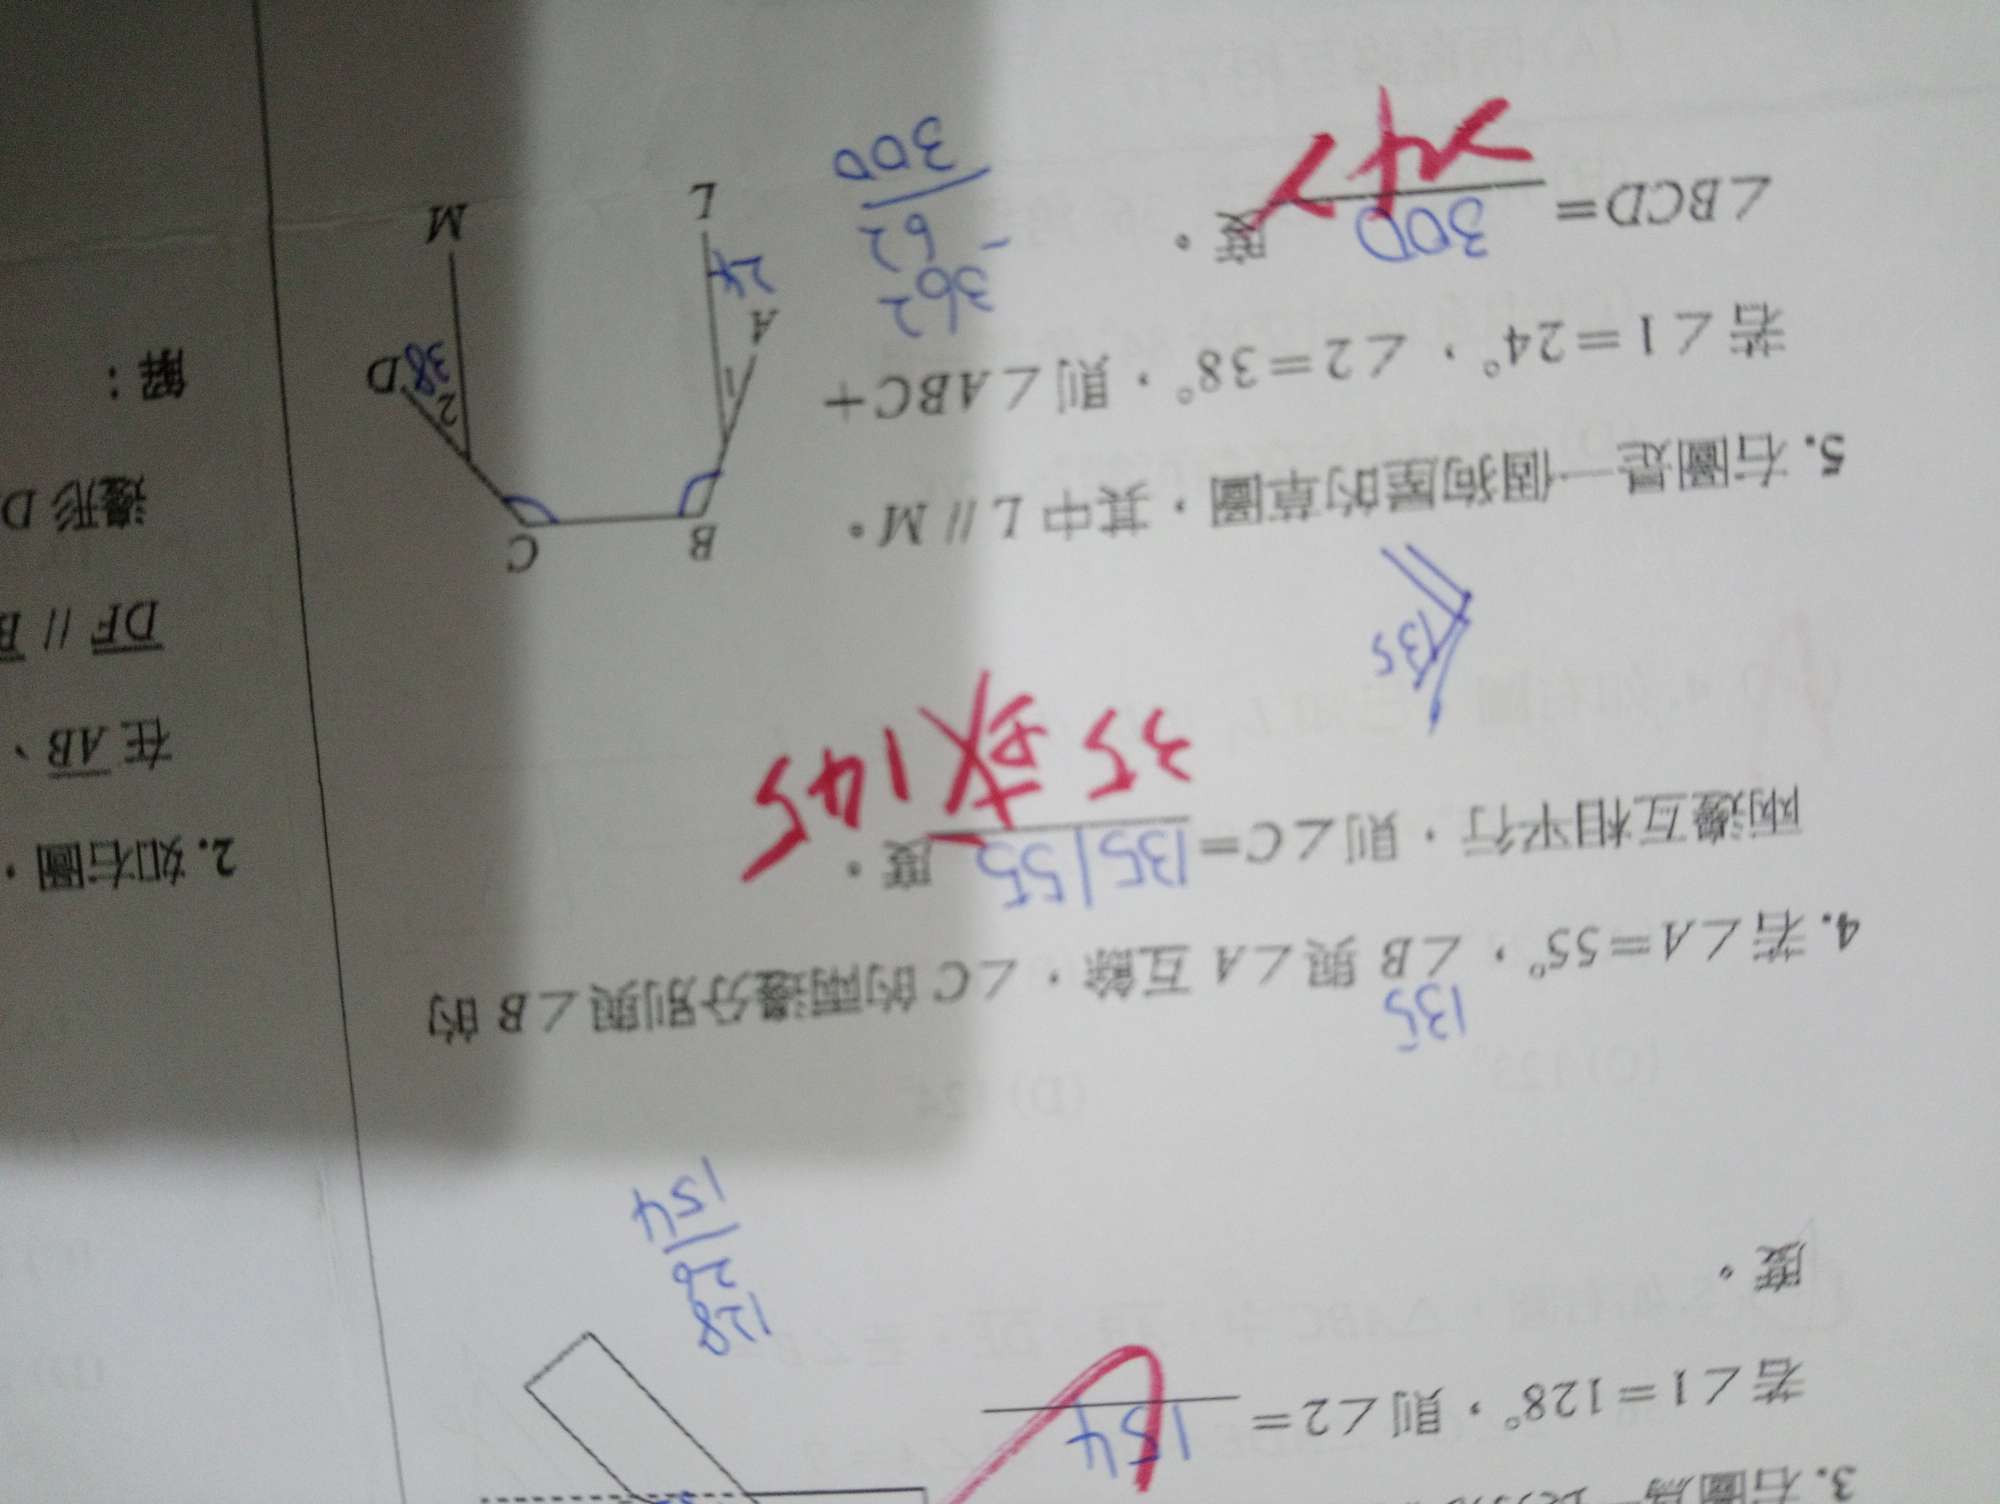 3. 右圖為一長方形
若∠1=128°，則∠2= 154
度。
128
26
154
4. 若∠A=55°，∠B 與∠A 互餘，∠C 的兩邊分別與∠B 的
135
兩邊互相平行，則∠C= 135/55 度。
35 或 145
135
5. 右圖是一個狗屋的草圖，其中 L // M。
若∠1=24°，∠2=38°，則∠ABC+
∠BCD= 300 度。
362
- 62
300
B
C
A
1
24
L
2
38
D
M
2. 如右圖，
在 AB、
DF // B
邊形 D
解：